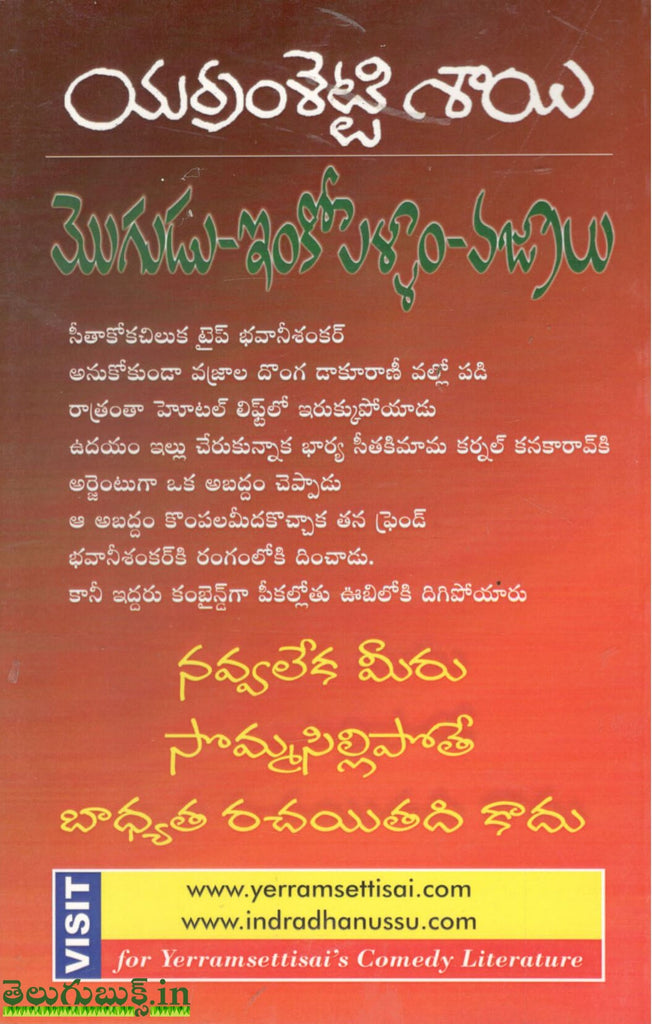 యర్రంశెట్టి శాయి
మొగుడు-ఇంకోపెళ్ళాం-వజ్రాలు
సీతాకోకచిలుక టైప్ భవానీశంకర్
అనుకోకుండా వజ్రాల దొంగ డాకూరాణీ వల్లో పడి
రాత్రంతా హెూటల్ లిఫ్ట్‌లో ఇరుక్కుపోయాడు
ఉదయం ఇల్లు చేరుకున్నాక భార్య సీతకిమామ కర్నల్ కనకారావ్‌కి
అర్జెంటుగా ఒక అబద్దం చెప్పాడు
ఆ అబద్దం కొంపలమీదకొచ్చాక తన ఫ్రెండ్
భవానీశంకర్‌కి రంగంలోకి దించాడు.
కానీ ఇద్దరు కంబైన్డ్‌గా పీకల్లోతు ఊబిలోకి దిగిపోయారు
నవ్వలేక మీరు
సొమ్మసిల్లిపోతే
బాధ్యత రచయితది కాదు
VISIT
www.yerramsettisai.com
www.indradhanussu.com
for Yerramsettisai's Comedy Literature
తెలుగుబుక్స్.in